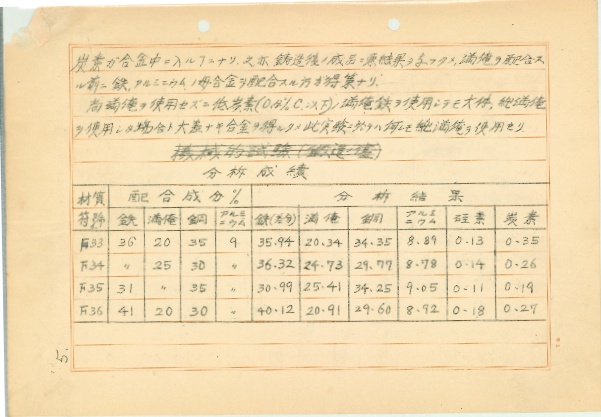 炭素ガ合金中ニ入ルコトナリ、又亦鋳造後ノ成品ニ悪結果ヲ与フタメ、満俺ヲ配合ス
ル前ニ鉄、アルミニウムノ母合金ヲ配合スル方ガ得策ナリ.
尚満俺ヲ使用セズニ低炭素(0.4% C 以下)ノ満俺鉄ヲ使用シテモ大体、純満俺
ヲ使用シタ場合ト大差ナキ合金ヲ得ルタメ此実験ニ於テハ何レモ純満俺ヲ使用セリ
機械的試験(鋳造ノ儘)
分析成績
材質 配合成分% 分析結果
符号 鉄 満俺 銅 アルミニウム 鉄(差分) 満俺 銅 アルミニウム 硅素 炭素
F33 36 20 35 9 35.94 20.34 34.35 8.89 0.13 0.35
F34 〃 25 30 〃 36.32 24.73 29.77 8.78 0.14 0.26
F35 31 〃 35 〃 30.99 25.41 34.25 9.05 0.11 0.19
F36 41 20 30 〃 40.12 20.91 29.60 8.92 0.18 0.27